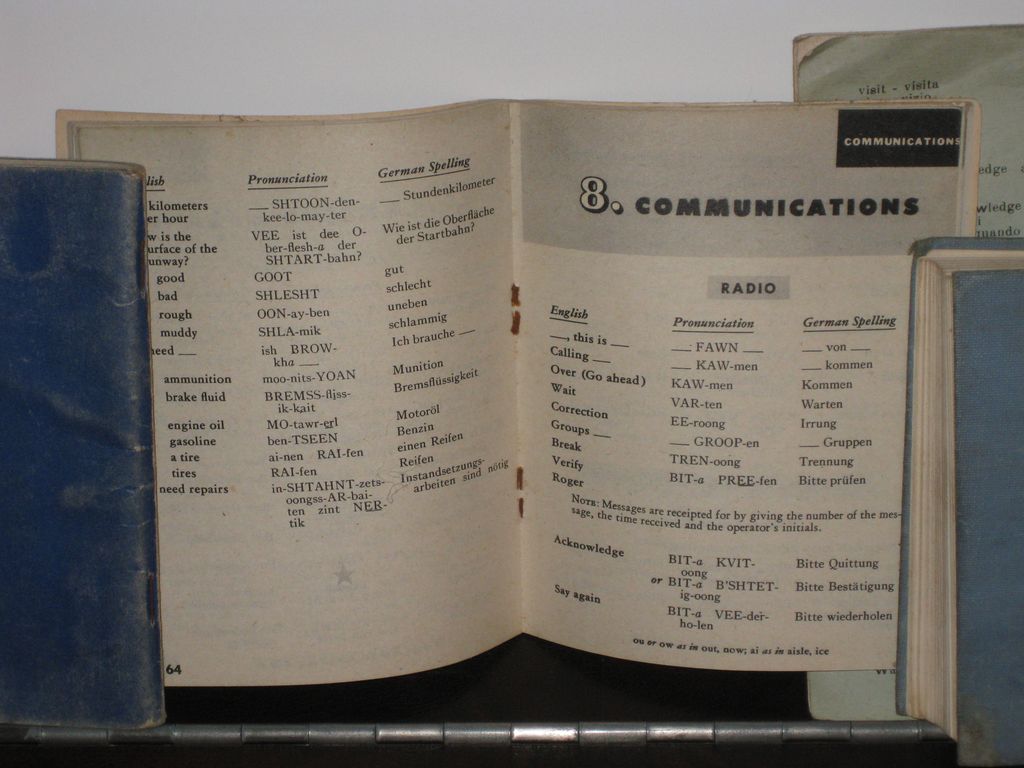 lish Pronunciation German Spelling
kilometers ___ SHTOON-den- ___ Stundenkilometer
er hour kee-lo-may-ter
w is the VEE ist dee O- Wie ist die Oberfläche
urface of the ber-flesh-a der der Startbahn?
unway? SHTART-bahn?
good GOOT gut
bad SHLESHT schlecht
rough OON-ay-ben uneben
muddy SHLA-mik schlammig
need ___ ish BROW- Ich brauche ___
kha ___
ammunition moo-nits-YOAN Munition
brake fluid BREMSS-fljss- Bremsflüssigkeit
ik-kait
engine oil MO-tawr-erl Motoröl
gasoline ben-TSEEN Benzin
a tire ai-nen RAI-fen einen Reifen
tires RAI-fen Reifen
need repairs in-SHTAHNT-zets- Instandsetzungs-
oongss-AR-bai- arbeiten sind nötig
ten zint NER-
tik
64
COMMUNICATIONS
8. COMMUNICATIONS
RADIO
English Pronunciation German Spelling
___, this is ___ ___ FAWN ___ ___ von ___
Calling ___ ___ KAW-men ___ kommen
Over (Go ahead) KAW-men Kommen
Wait VAR-ten Warten
Correction EE-roong Irrung
Groups ___ ___ GROOP-en ___ Gruppen
Break TREN-oong Trennung
Verify BIT-a PREE-fen Bitte prüfen
Roger
NOTE: Messages are receipted for by giving the number of the mes-
sage, the time received and the operator's initials.
Acknowledge BIT-a KVIT- Bitte Quittung
oong
or BIT-a B'SHTET- Bitte Bestätigung
ig-oong
Say again BIT-a VEE-der- Bitte wiederholen
ho-len
ou or ow as in out, now; ai as in aisle, ice
visit - visita
edge
wledge
quando